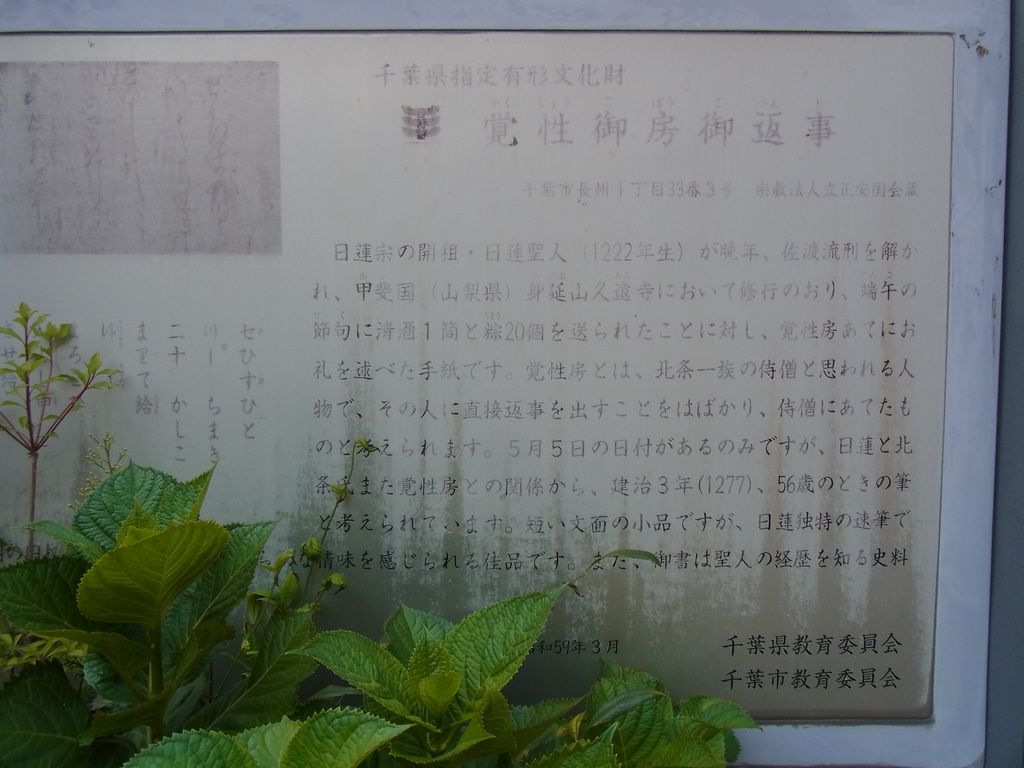 千葉県指定有形文化財
覚性御房御返事
かく しょう ご ぼう ご へん じ
千葉市長洲1丁目33番3号 宗教法人立正安国会蔵
日蓮宗の開祖・日蓮聖人(1222年生)が晩年、佐渡流刑を解か
れ、甲斐国(山梨県)身延山久遠寺において修行のおり、端午の
節句に清酒1筒と粽20個を送られたことに対し、覚性房あてにお
礼を述べた手紙です。覚性房とは、北条一族の侍僧と思われる人
物で、その人に直接返事を出すことをはばかり、侍僧にあてたも
のと考えられます。5月5日の日付があるのみですが、日蓮と北
条氏また覚性房との関係から、建治3年(1277)、56歳のときの筆
と考えられています。短い文面の小品ですが、日蓮独特の速筆で
情味を感じられる佳品です。また、御書は聖人の経歴を知る史料
和59年3月
千葉県教育委員会
千葉市教育委員会
せひすひと
ちまき
二十 かしこ
まいて給